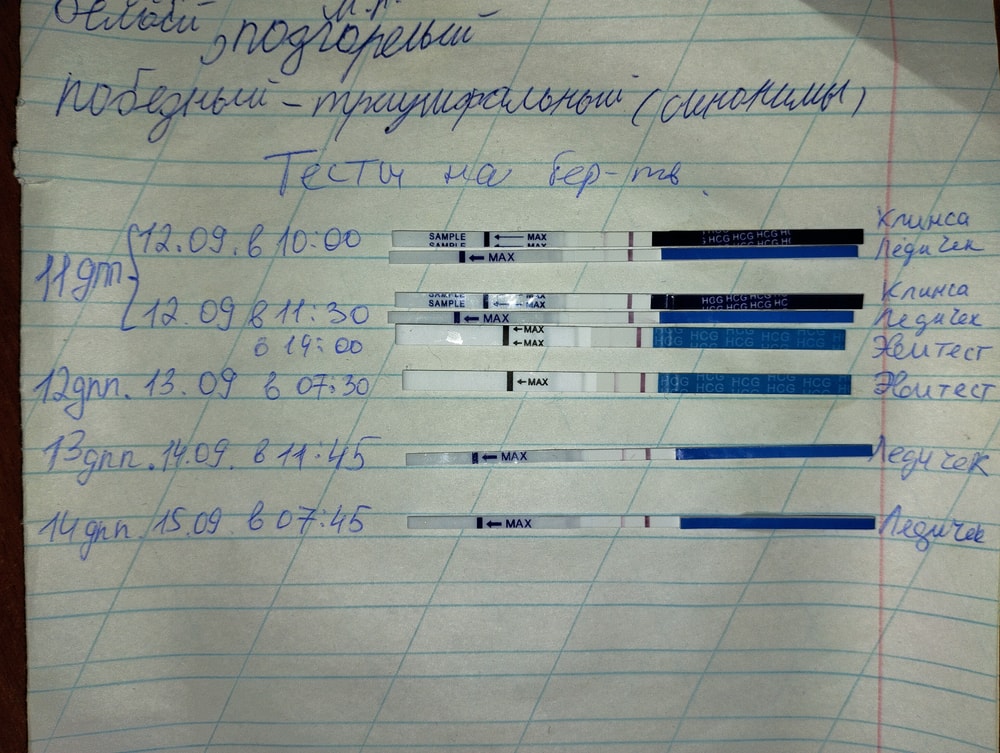 , подгорелый
победный – триумфальный (синонимы)
Тесты на бер-ть.
11дпп
12.09. в 10:00 SAMPLE MAX HCG HCG HCG Клинса
MAX Ледичек
SAMPLE MAX HCG HCG HCG HC Клинса
12.09 в 11:30 MAX Ледичек
в 19:00 MAX MAX HCG HCG HCG Эвитест
12дпп. 13.09 в 07:30 MAX HCG HCG HCG HCG Эвитест
13дпп. 14.09. в 11:45 MAX Ледичек
14дпп. 15.09 в 07:45 MAX Ледичек